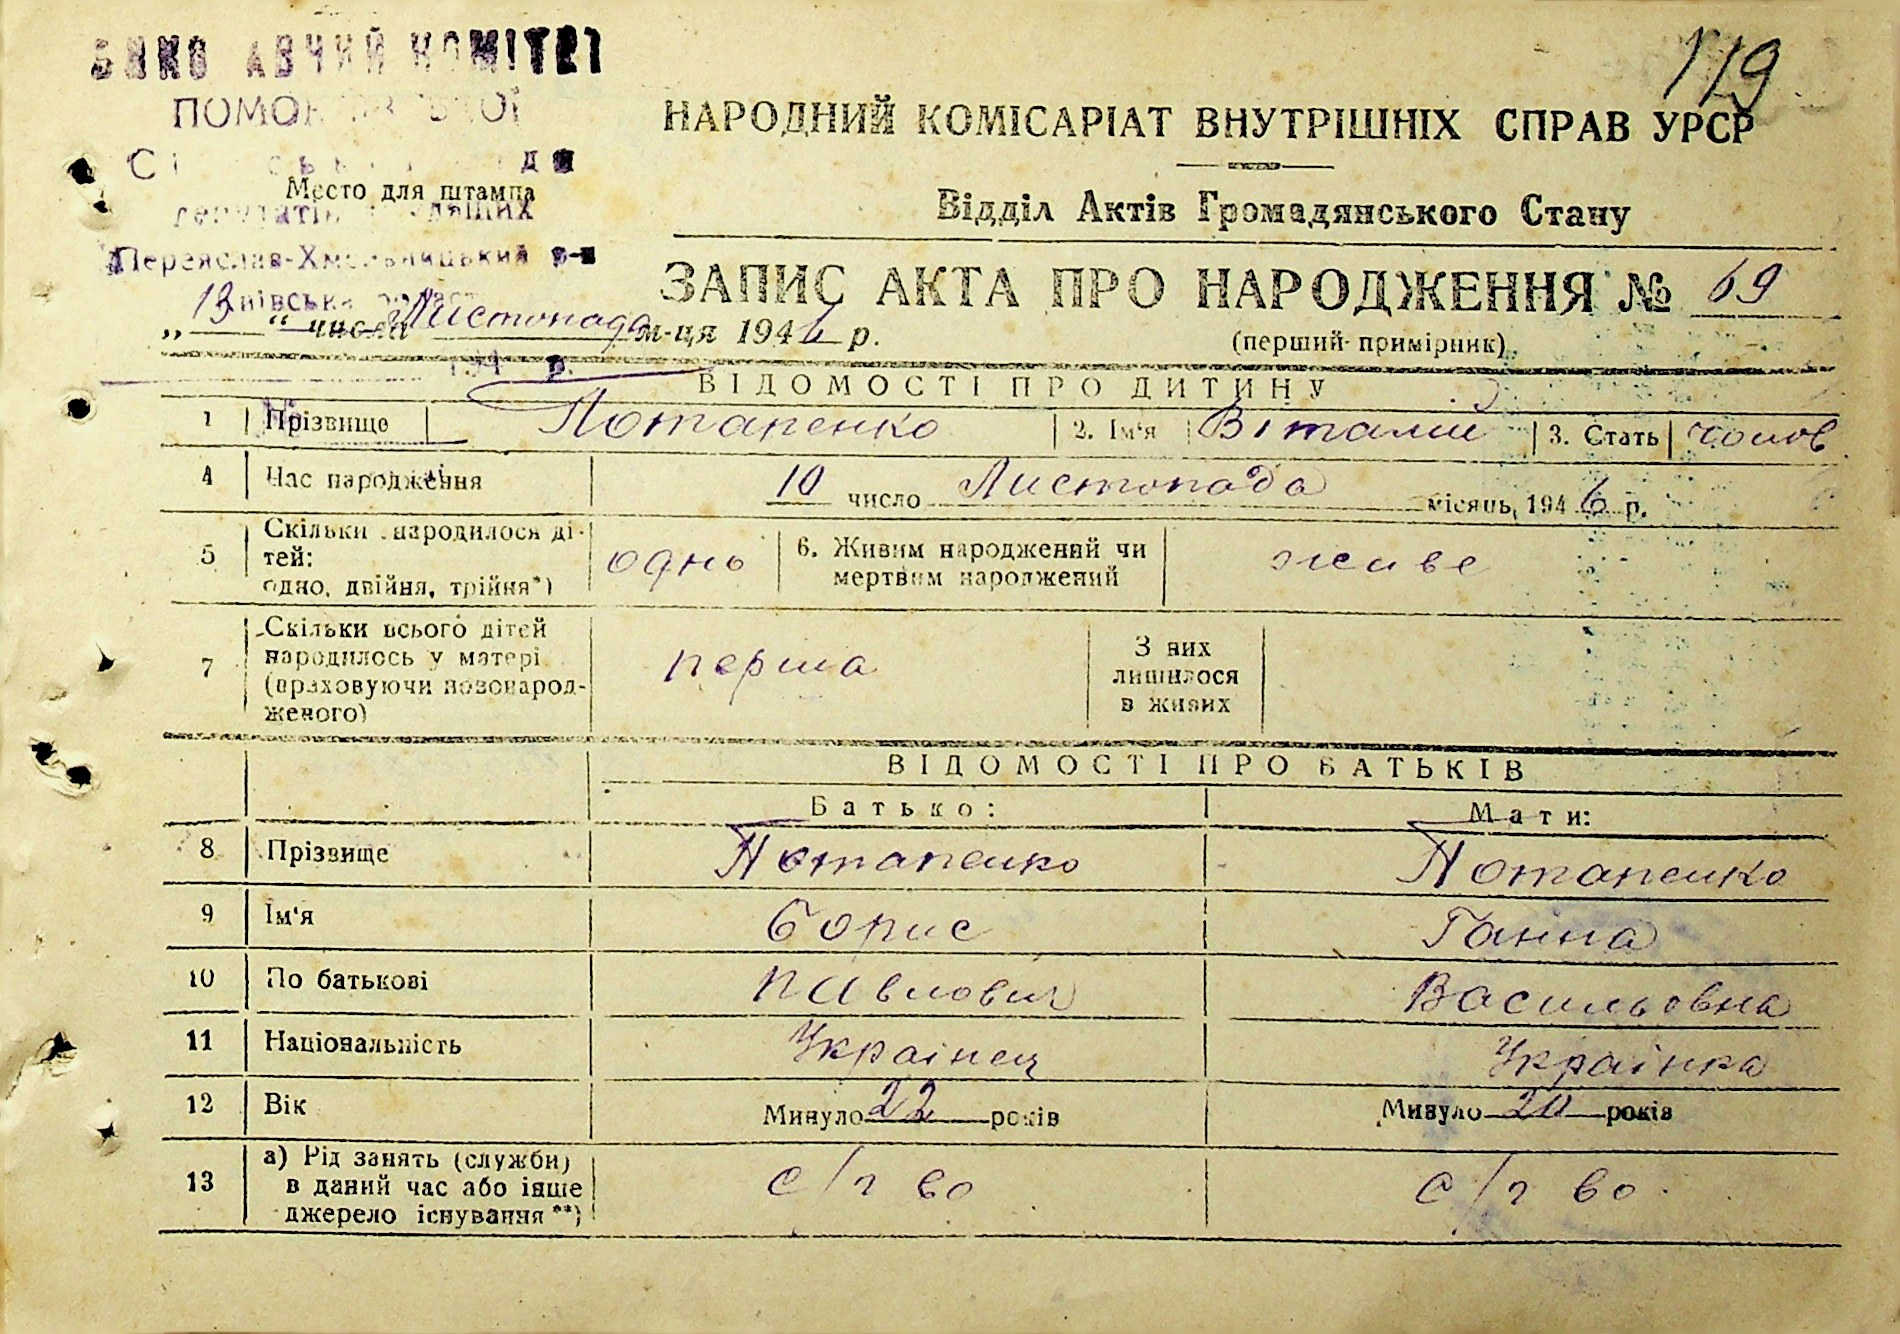 119
НАРОДНИЙ КОМІСАРІАТ ВНУТРІШНІХ СПРАВ УРСР
Место для штампа
Відділ Актів Громадянського Стану
Переяслав-Хмельницький р-н
ЗАПИС АКТА ПРО НАРОДЖЕННЯ № 69
„ 13 “ числа Листопада м-ця 1946 р.
(перший примірник)
194 р.
ВІДОМОСТІ ПРО ДИТИНУ
1 Прізвище Потапенко 2. Ім'я Віталий 3. Стать чолов
4 Час народження 10 число Листопада місяць, 1946 р.
5 Скільки народилося ді-
тей:
одно, двійня, трійня*)
одно
6. Живим народжений чи
мертвим народжений
живе
7 Скільки всього дітей
народилось у матері
(враховуючи новонарод-
женого)
перша
З них
лишилося
в живих
ВІДОМОСТІ ПРО БАТЬКІВ
Батько: Мати:
8 Прізвище Потапенко Потапенко
9 Ім'я Борис Ганна
10 По батькові Павлович Васильовна
11 Національність Українец Українка
12 Вік Минуло 22 років Минуло 20 років
13 а) Рід занять (служби)
в даний час або інше
джерело існування**)
с/г во с/г во